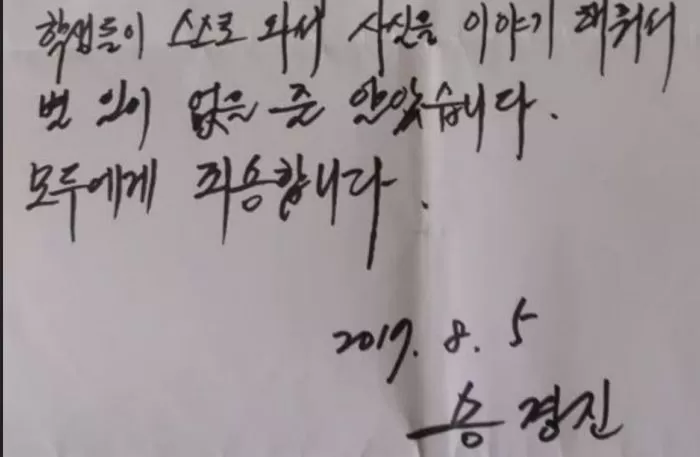 학생들이 스스로 와서 사실을 이야기 해줘서
별 일이 없을 줄 알았습니다.
모두에게 죄송합니다.
2017. 8. 5
송경진